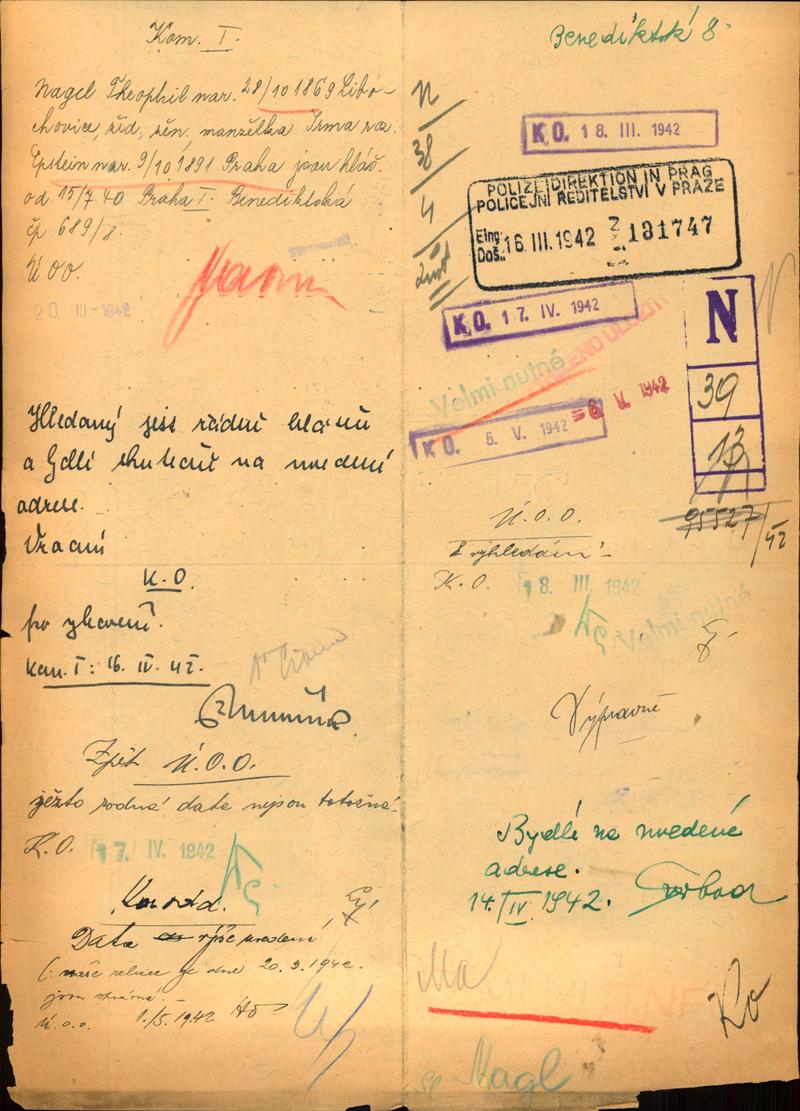 Kom. I.
Nagel Theophil nar. 28/10 1869 Libo-
chovice, žid, žen. manželka Irma roz.
Epstein nar. 9/10 1891 Praha jsou hláš.
od 15/7 40 Praha I. Benediktská
čp 689/8.
Ú O O.
20. III. 1942
Hledaný jest řádně hlášen
a bydlí skutečně na uvedené
adrese.
Vrací
K.O.
po vyhovění.
Kom. I: 16. IV. 42.
Zpět Ú.O.O.
ježto rodná data nejsou totožná.
K.O. 17. IV. 1942
Data výše uvedená
(naše relace ze dne 20.3.1942.
jsou správná.
Ú.O.O. 1./5. 1942
Benediktská 8
N
38
4
K.O. 18. III. 1942
POLIZEIDIREKTION IN PRAG
POLICEJNÍ ŘEDITELSTVÍ V PRAZE
Eing.
Doš. 16. III. 1942 Z 131747
K.O. 17. IV. 1942
Velmi nutné
K.O. 5. V. 1942
6. V. 1942
N
39
13
95527/42
Ú.O.O.
k vyhledání
K.O. 18. III. 1942
Velmi nutné
Výpravně
Bydlí na uvedené
adrese.
14./IV. 1942.
Ma
Ko
Nagl